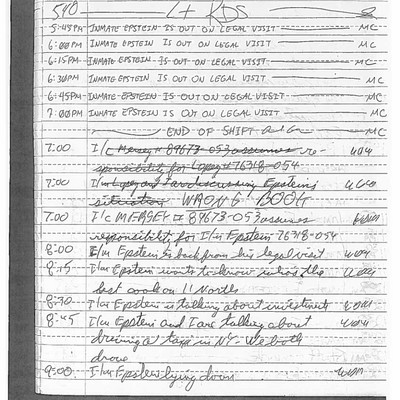 540 L+ KDS
5:45PM INMATE EPSTEIN IS OUT ON LEGAL VISIT MC
6:00PM INMATE EPSTEIN IS OUT ON LEGAL VISIT MC
6:15PM INMATE EPSTEIN IS OUT ON LEGAL VISIT MC
6:30PM INMATE EPSTEIN IS OUT ON LEGAL VISIT MC
6:45PM INMATE EPSTEIN IS OUT ON LEGAL VISIT MC
7:00PM INMATE EPSTEIN IS OUT ON LEGAL VISIT MC
END OF SHIFT MC
7:00 I/c Mersey # 89673-053 assumes re-
sponsibility for Lopez # 76318-054
7:00 I/m Lopez and I are discussing Epsteins
situation WRONG BOOG
7:00 I'c MERSEY II 89673-053 assumes
responsibility for I/m Epstein 76318-054
8:00 I/m Epstein is back from his legal visit
8:15 I/m Epstein wants to know who's the
best cook on 11 North
8:30 I/m Epstein is talking about investments
8:45 I/m Epstein and I are talking about
driving a taxi in NY. We both
drove
9:00 I/m Epstein lying down